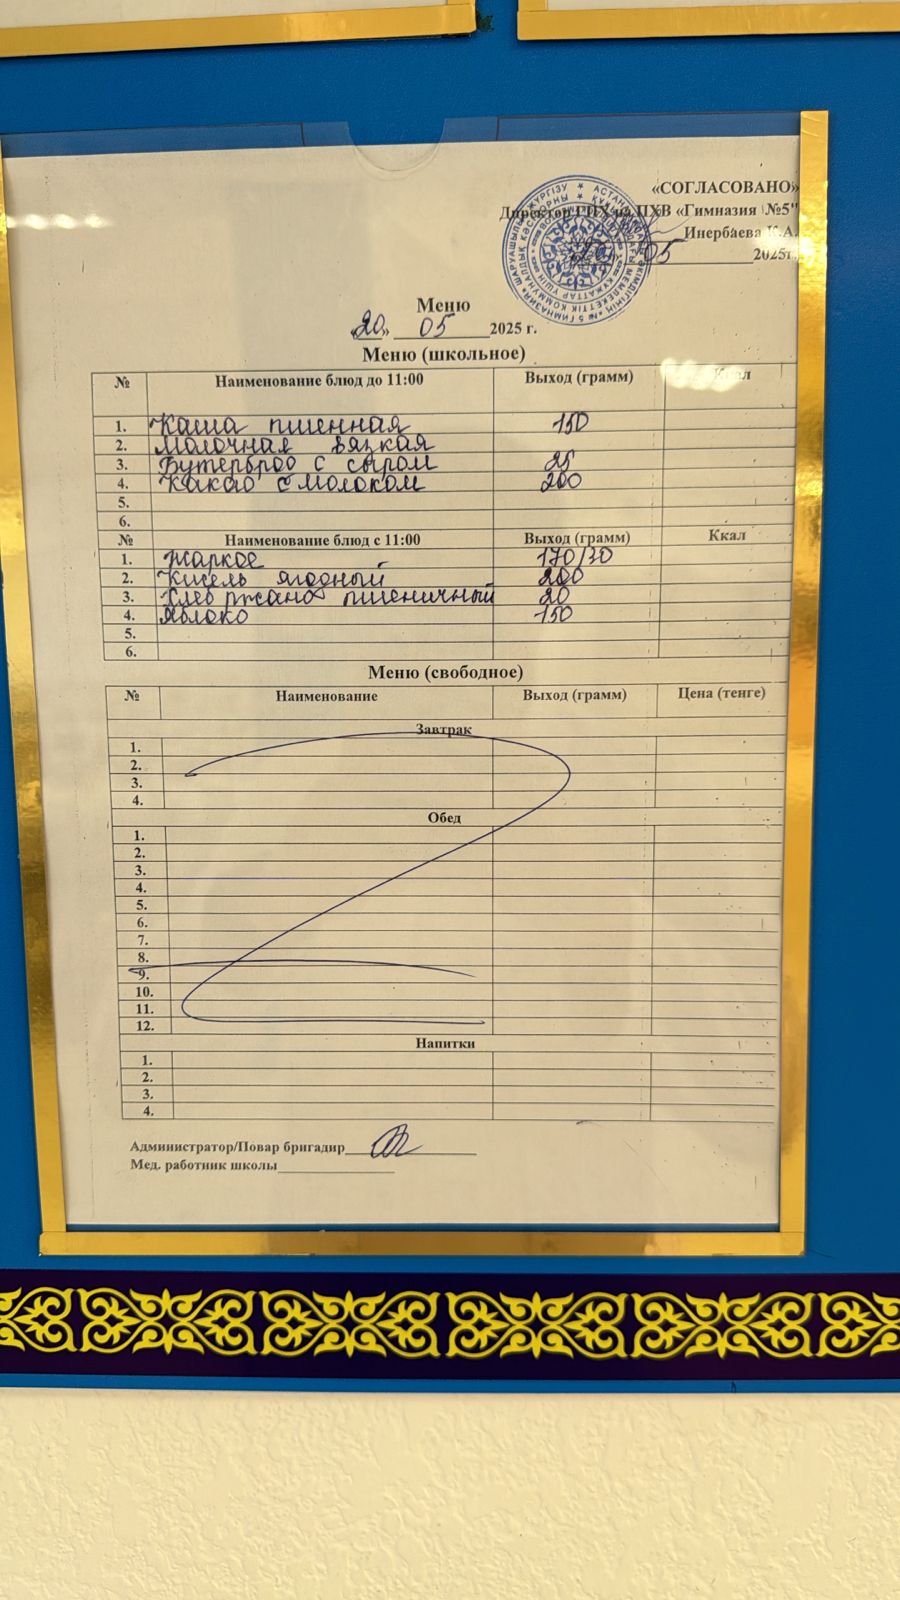 «СОГЛАСОВАНО»
Директор ГКП на ПХВ «Гимназия №5"
Инербаева К.А.
05 2025г.
Меню
«20» 05 2025 г.
Меню (школьное)
№ Наименование блюд до 11:00 Выход (грамм) Ккал
1. Каша пшенная 150
2. Молочная вязкая
3. Бутерброд с сыром 25
4. Какао с молоком 200
5.
6.
№ Наименование блюд с 11:00 Выход (грамм) Ккал
1. Жаркое 170/30
2. Кисель ягодный 200
3. Хлеб ржано пшеничный 20
4. Яблоко 150
5.
6.
Меню (свободное)
№ Наименование Выход (грамм) Цена (тенге)
Завтрак
1.
2.
3.
4.
Обед
1.
2.
3.
4.
5.
6.
7.
8.
9.
10.
11.
12.
Напитки
1.
2.
3.
4.
Администратор/Повар бригадир
Мед. работник школы